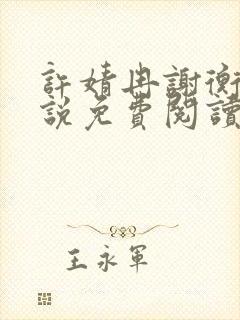 許婧冉謝衡
說免費閱讀
王永軍